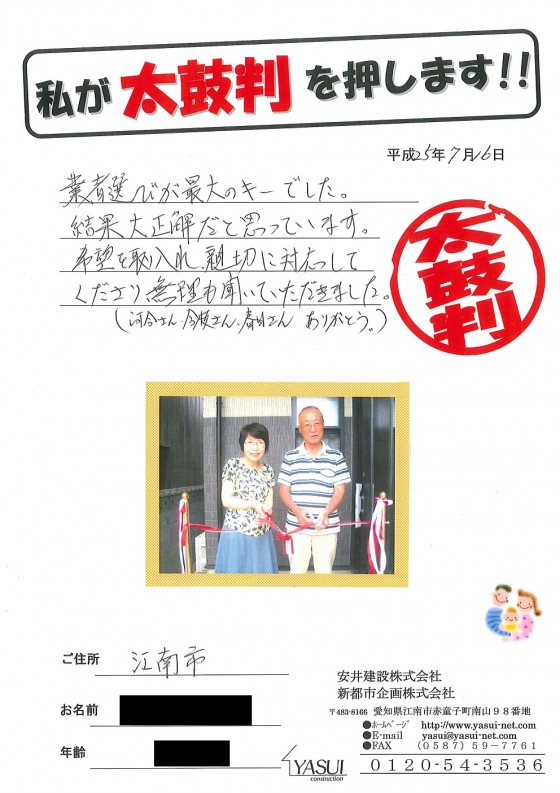 私が太鼓判を押します!!
平成25年7月16日
業者選びが最大のキーでした。
結果大正解だと思っています。
希望を取入れ、親切に対応して
くださり無理も聞いていただきました。
(河合さん、今枝さん、春日さん ありがとう。)
太鼓判
ご住所 江南市
お名前
年齢
安井建設株式会社
新都市企画株式会社
〒483-8166 愛知県江南市赤童子町南山98番地
●ホームページ http://www.yasui-net.com
●E-mail yasui@yasui-net.com
●FAX (0587)59-7761
0120-54-3536
YASUI
construction